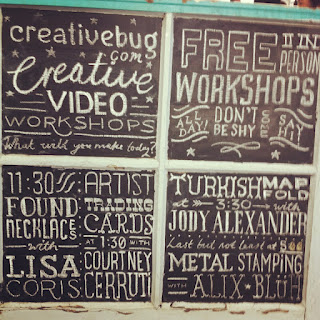 creativebug
.com
Creative
VIDEO
WORKSHOPS
What will you make today?
FREE IN PERSON
WORKSHOPS
ALL DAY! DON'T BE SHY COME SAY HI!
11:30
FOUND
NECKLACES
with
LISA
CORIS
ARTIST
TRADING
CARDS
AT 1:30 WITH
COURTNEY
CERRUTI
TURKISH MAP FOLD
at 3:30 with
JODY ALEXANDER
Last but not least at
METAL STAMPING
WITH ALIX